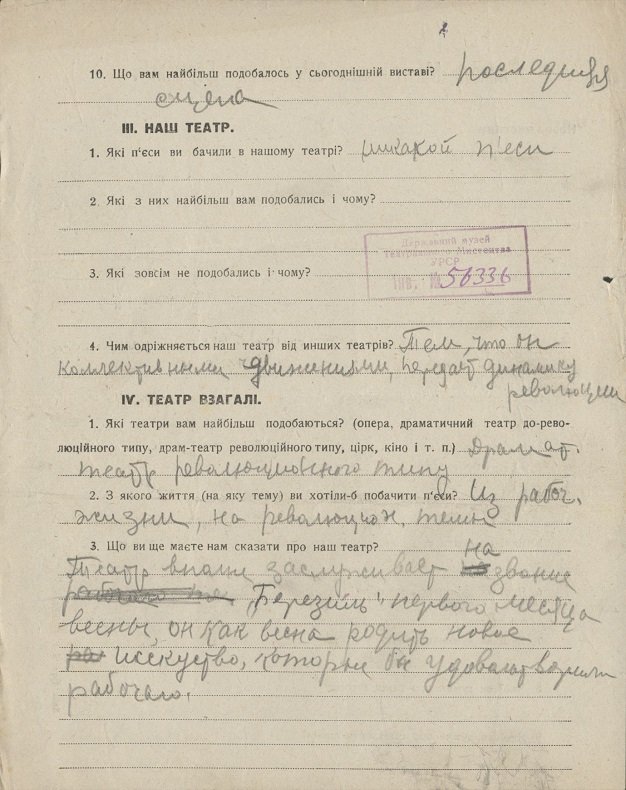 10. Що вам найбільш подобалось у сьогоднішній виставі? последняя
сцена
III. НАШ ТЕАТР.
1. Які п'єси ви бачили в нашому театрі? никакой п'еси
2. Які з них найбільш вам подобались і чому?
Державний музей
Театрального Мистецтва
УРСР
ІНВ. № 56336
3. Які зовсім не подобались і чому?
4. Чим одріжняється наш театр від инших театрів? Тем, что он
коллективными движениями, передает динамику
революции
IV. ТЕАТР ВЗАГАЛІ.
1. Які театри вам найбільш подобаються? (опера, драматичний театр до-рево-
люційного типу, драм-театр революційного типу, цірк, кіно і т. п.) Драмат.
театр революционного типу
2. З якого життя (на яку тему) ви хотіли-б побачити п'єси? Из рабоч.
жизни, на революцион, темы
3. Що ви ще маєте нам сказати про наш театр?
на
Театр вполне заслуживает звание
„Березиль" первого месяца
весны, он как весна родить новое
исскуство, которые бы удовлетворили
рабочого.